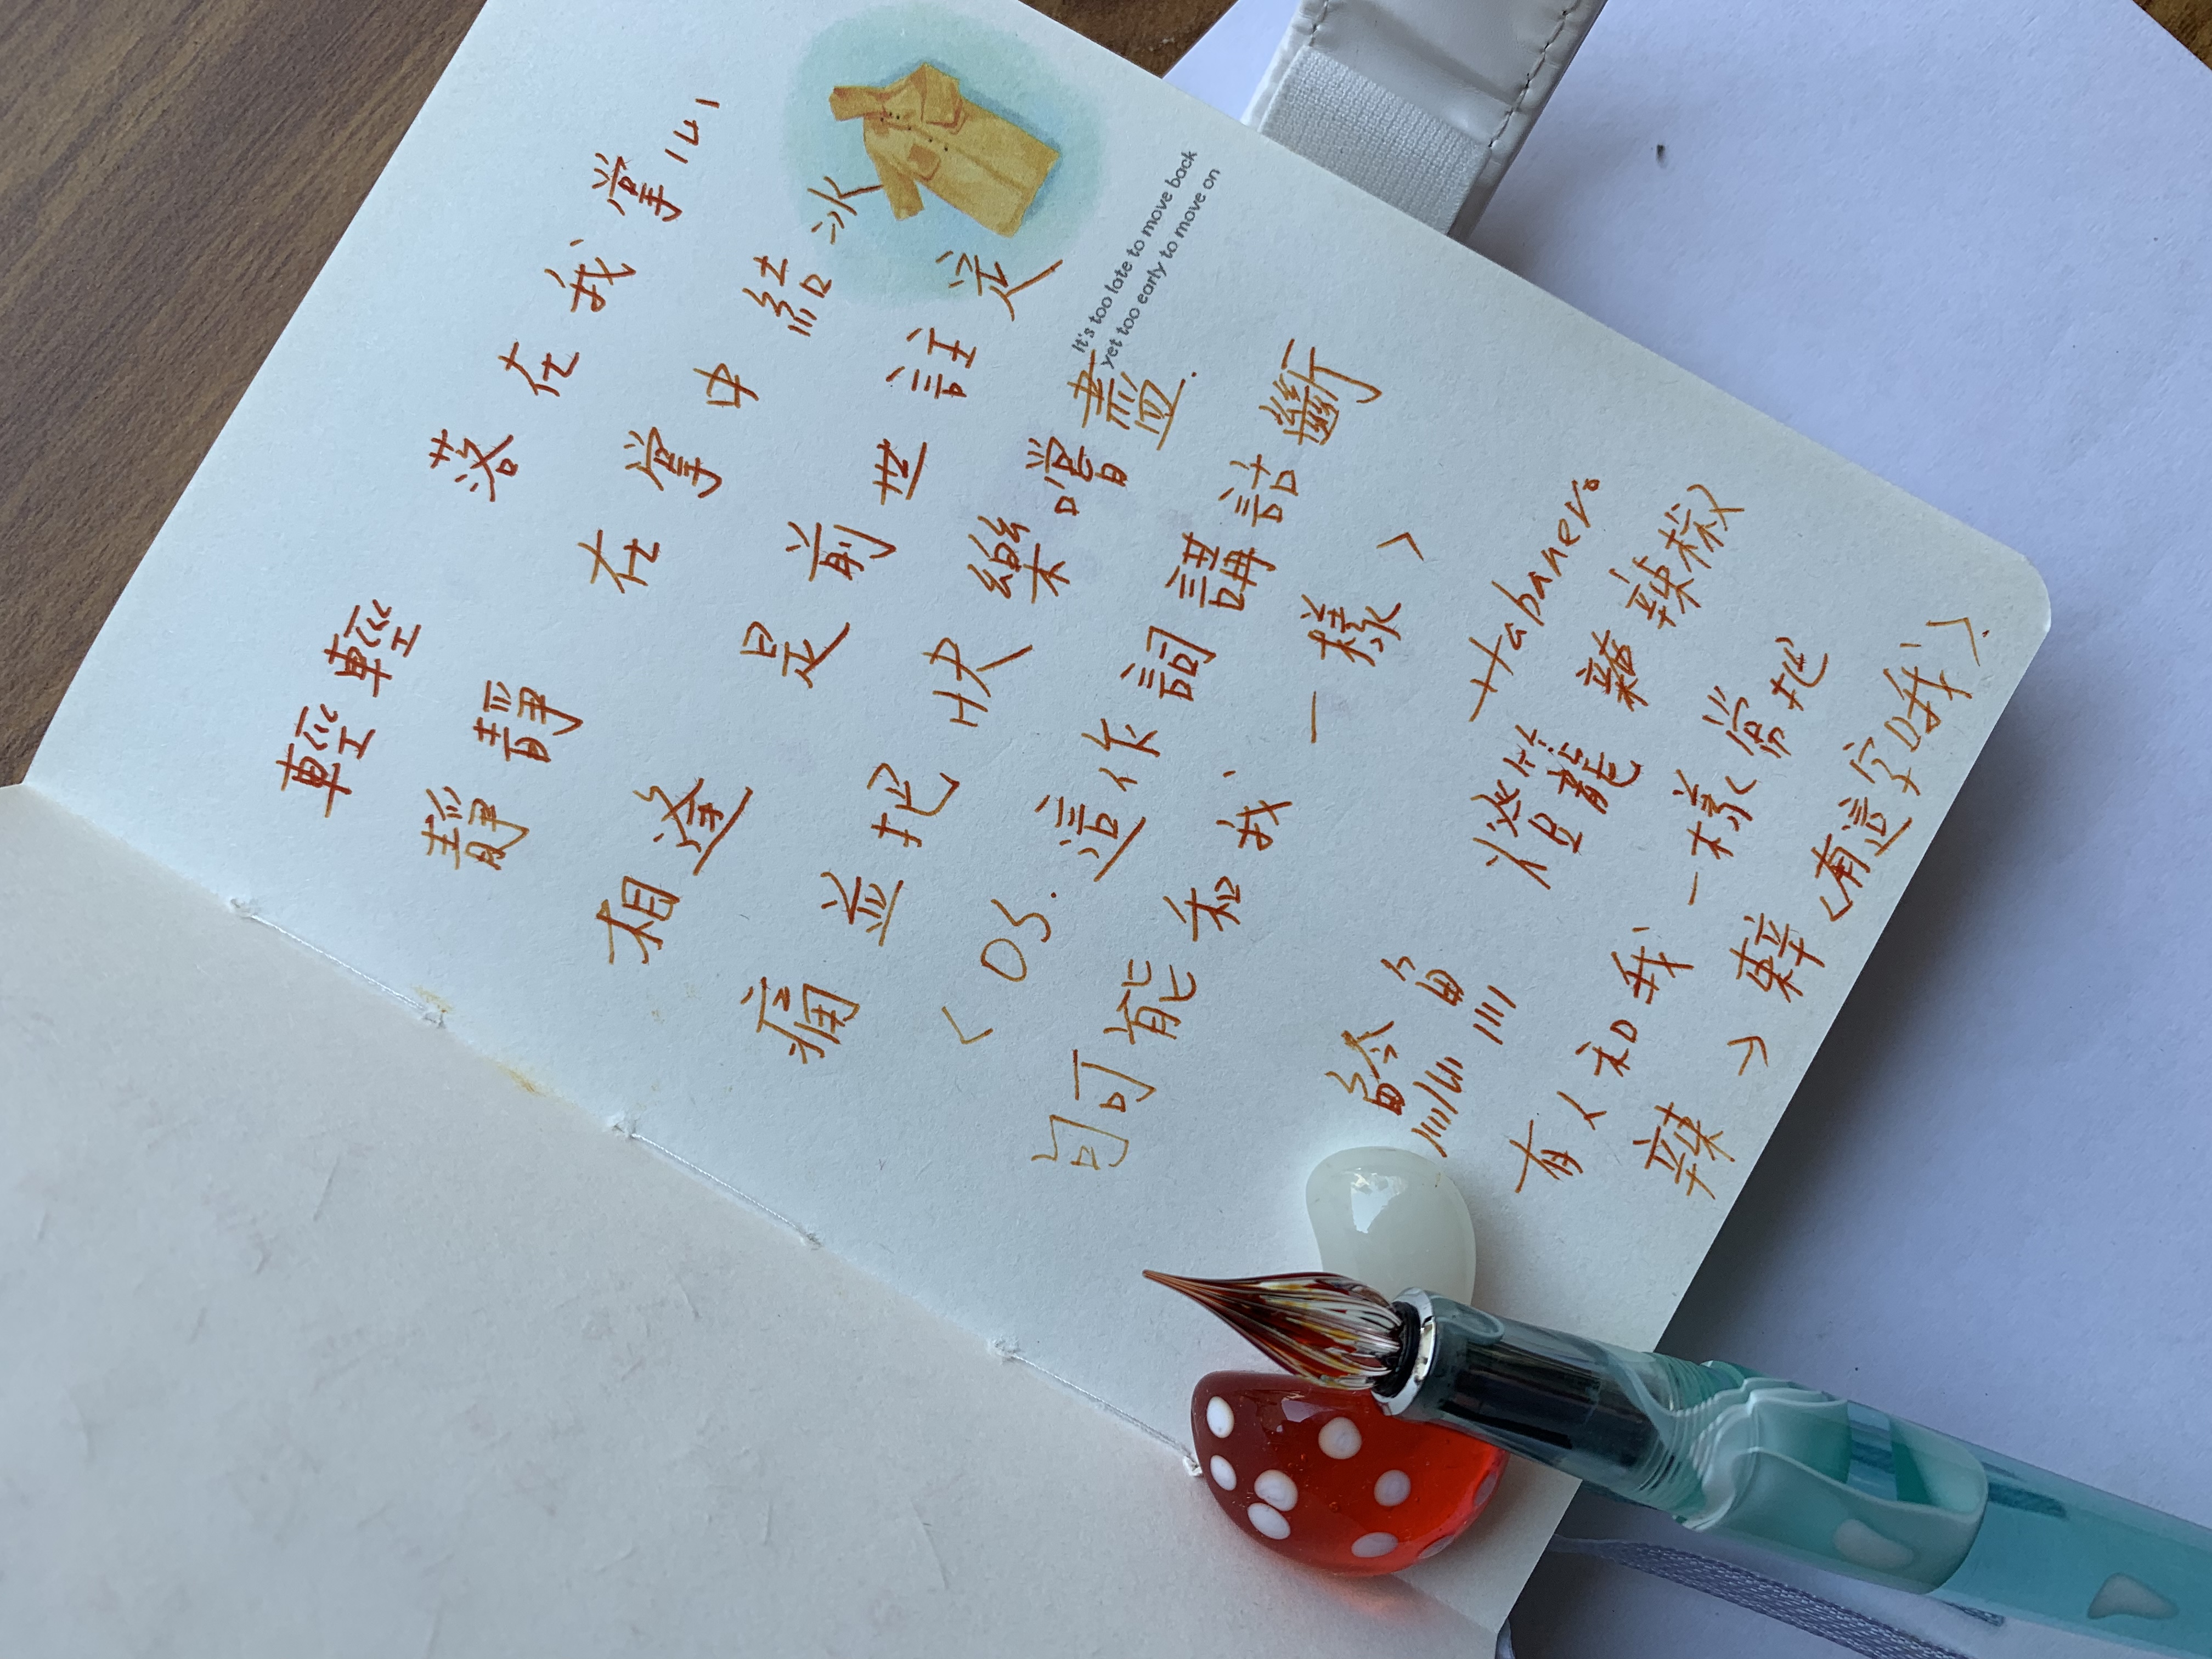 輕輕 落在我掌心
靜靜 在掌中結冰
相逢 是前世註定
痛並把快樂嚐盡.
It's too late to move back
yet too early to move on
<OS. 這作詞講話斷
句可能和我一樣>
Habanero
魚 燈籠 辣椒
有人和我一樣常把
辣 → <有這字哦>.